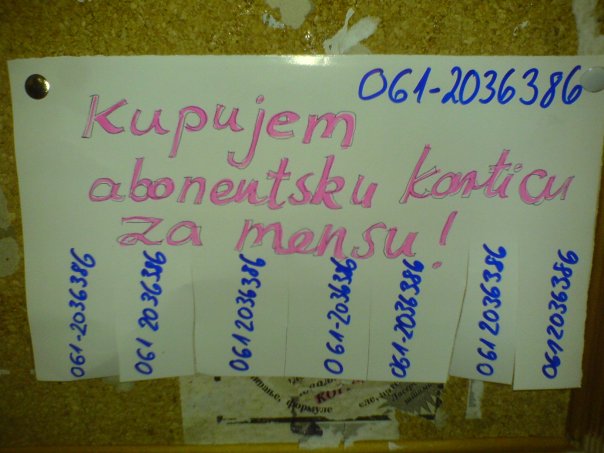 061-2036386
Kupujem
abonentsku karticu
za mensu!
061-2036386
061 2036386
061 2036386
061-2036386
061-2036386
061 2036386
061 2036386
формуле